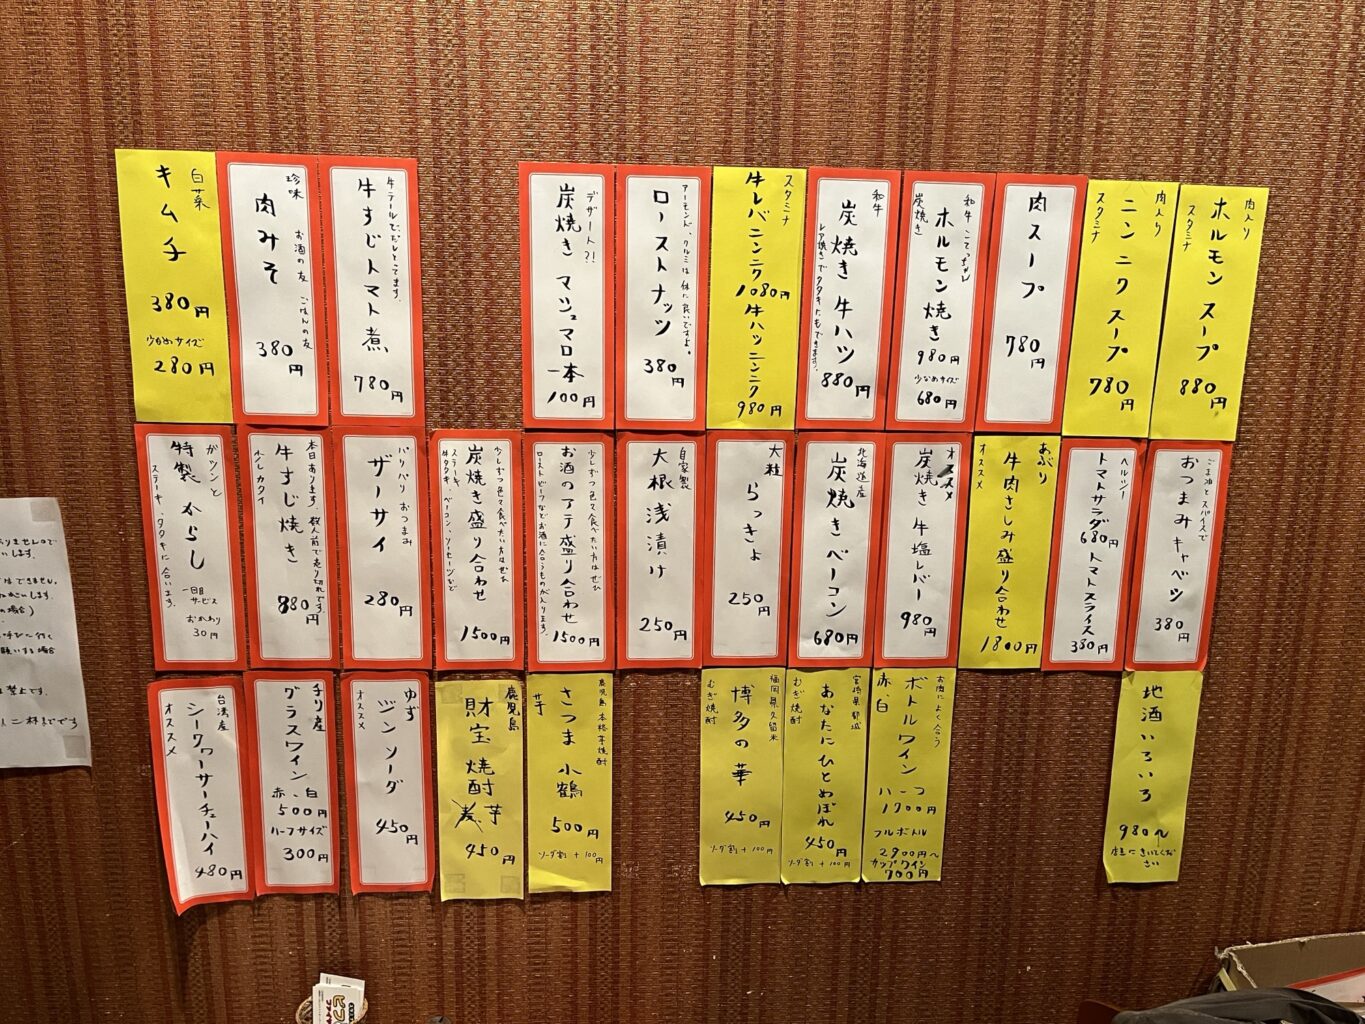 肉入り
ホルモンスープ
スタミナ
880円
肉入り
ニンニクスープ
スタミナ
780円
肉スープ
780円
和牛こてっちゃん
ホルモン焼き
炭焼き
980円
少なめサイズ
680円
和牛
炭焼き 牛ハツ
レア焼きでタタキにもできます。
880円
スタミナ
牛レバニンニク
1080円
牛ハツニンニク
980円
アーモンド、クルミは体に良いですよ。
ローストナッツ
380円
デザート?!
炭焼き マシュマロ一本
100円
牛テールでだしとってます。
牛すじトマト煮
780円
珍味
肉みそ
お酒の友 ごはんの友
380円
白菜
キムチ
380円
少なめサイズ
280円
ごま油とスパイスで
おつまみキャベツ
380円
ヘルシー
トマトサラダ
680円
トマトスライス
380円
あぶり
牛肉さしみ盛り合わせ
オススメ
1800円
オススメ
炭焼き 牛塩レバー
980円
北海道産
炭焼きベーコン
680円
大粒
らっきょ
250円
自家製
大根浅漬け
250円
少しずつ色々食べたい方はぜひ
お酒のアテ盛り合わせ
ローストビーフなどお酒に合うものが入ります。
1500円
少しずつ色々食べたい方はぜひ
炭焼き盛り合わせ
ステーキ、
牛タタキ、ベーコン、ソーセージなど
1500円
パリパリ おつまみ
ザーサイ
280円
本日あります。数人前で売り切れです。
牛すじ焼き
880円
ガツンと
特製 からし
ステーキ、タタキに合います。
一回目
サービス
おかわり
30円
地酒いろいろ
980〜
店主にきいてください
お肉によく合う
ボトルワイン
赤、白
ハーフ
1700円
フルボトル
2900円〜
カップワイン
700円
宮崎県都城
あなたにひとめぼれ
むぎ焼酎
450円
ソーダ割 +100円
福岡県久留米
博多の華
むぎ焼酎
450円
ソーダ割 +100円
鹿児島 本格芋焼酎
さつま小鶴
芋
500円
ソーダ割 +100円
鹿児島
財宝 焼酎
芋
450円
ゆず
ジンソーダ
オススメ
450円
チリ産
グラスワイン
赤、白
500円
ハーフサイズ
300円
台湾産
シークワーサーチューハイ
オススメ
480円